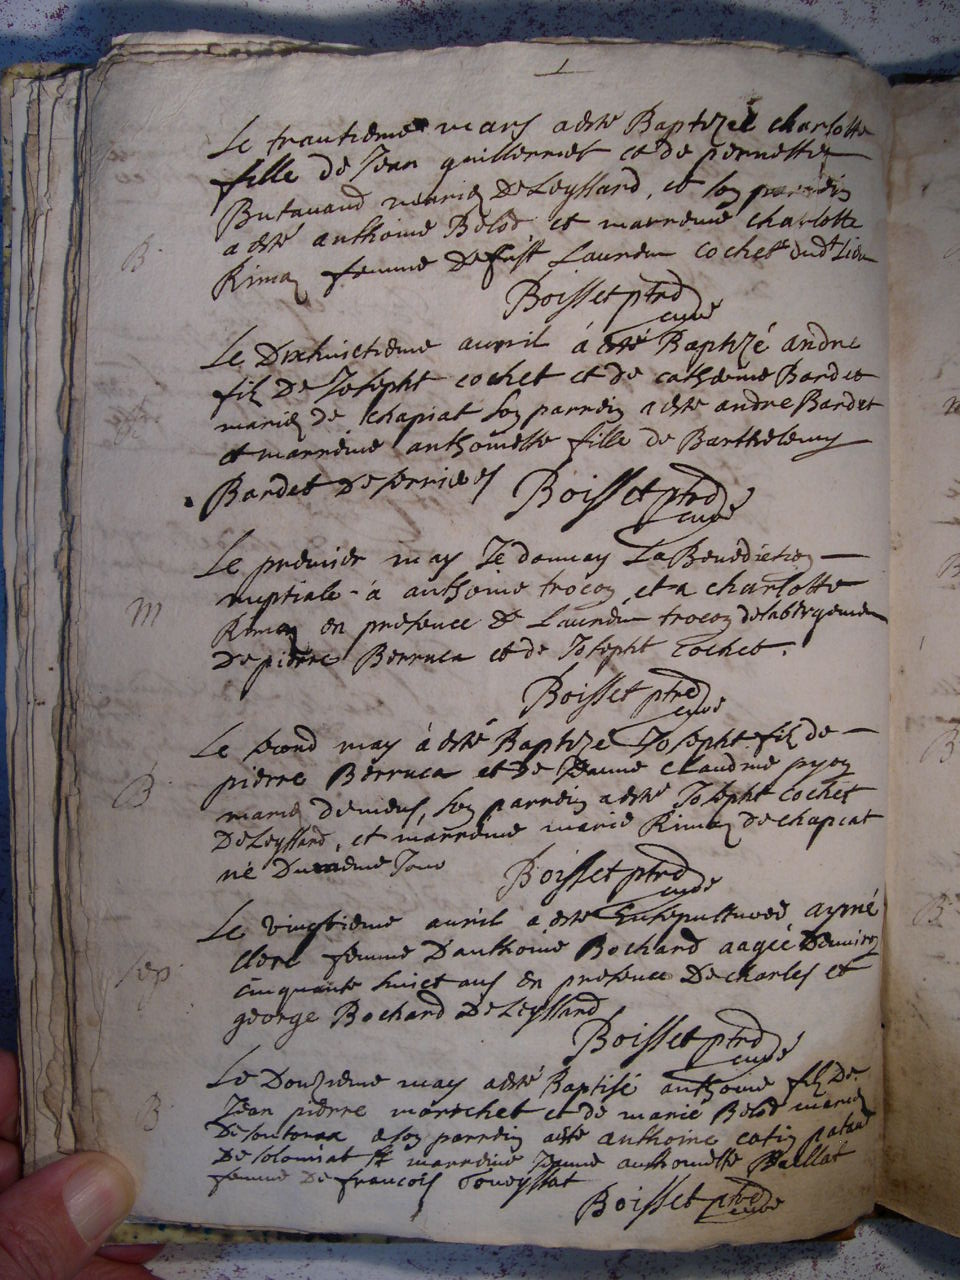 Le trantième mars a esté Baptizée charlotte
fille de Jean guillermet et de pernette
Butavand mariez De Leyssard, et son parrein
a esté anthoine Belod et marreine charlotte
B
Rimaz femme de Laurens cochet dud.t Lieu
Boisset ptre
curé
Le Dixhuictième avvril á esté Baptizé andre
filz De Josepht cochet et de catherine Bardet
mariez de chapiat son parrein a esté andre Bardet
et marreine anthoinette fille de Barthelemy
Bardet De serrieres
Boisset ptre
curé
Le premier may Jé donnay La Benediction
m
nuptiale à anthoine trocon et a charlotte
Rimaz en presence de Laurens trocon
De pierre Berruca et de Josepht cochet.
Boisset ptre
curé
Le second may á esté Baptize Josepht filz de
B
pierre Berruca et de Jeanne claudine pyon
mariez demeus, son parrein a esté Josepht cochet
De Leyssard, et marreine marie Rimaz de chapiat
né Du même Jour
Boisset ptre
curé
Le vingtième avril a esté Ensepulturée aymé
clerc femme D'anthoine Bochard aagée D'environ
sep
cinquante huict ans en presence De charles et
george Bochard De Leyssard
Boisset ptre
curé
Le Douzième may a esté Baptisé anthoine filz De
B
Jean pierre marechet et de marie Belod mariez
De soutonax son parrein a esté anthoine cotin
De solomiat et marreine Jeanne anthoinette Baillat
femme De françois
Boisset ptre
curé